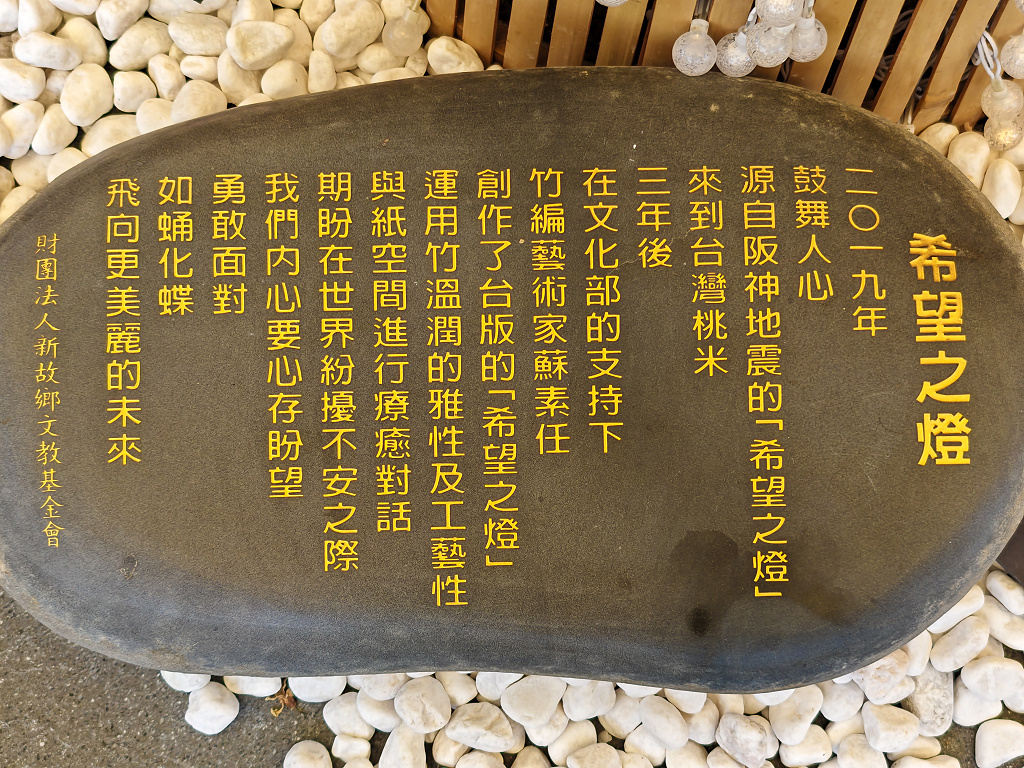 希望之燈
二〇一九年
鼓舞人心
源自阪神地震的「希望之燈」
來到台灣桃米
三年後
在文化部的支持下
竹編藝術家蘇素任
創作了台版的「希望之燈」
運用竹溫潤的雅性及工藝性
與紙空間進行療癒對話
期盼在世界紛擾不安之際
我們內心要心存盼望
勇敢面對
如蛹化蝶
飛向更美麗的未來
財團法人新故鄉文教基金會